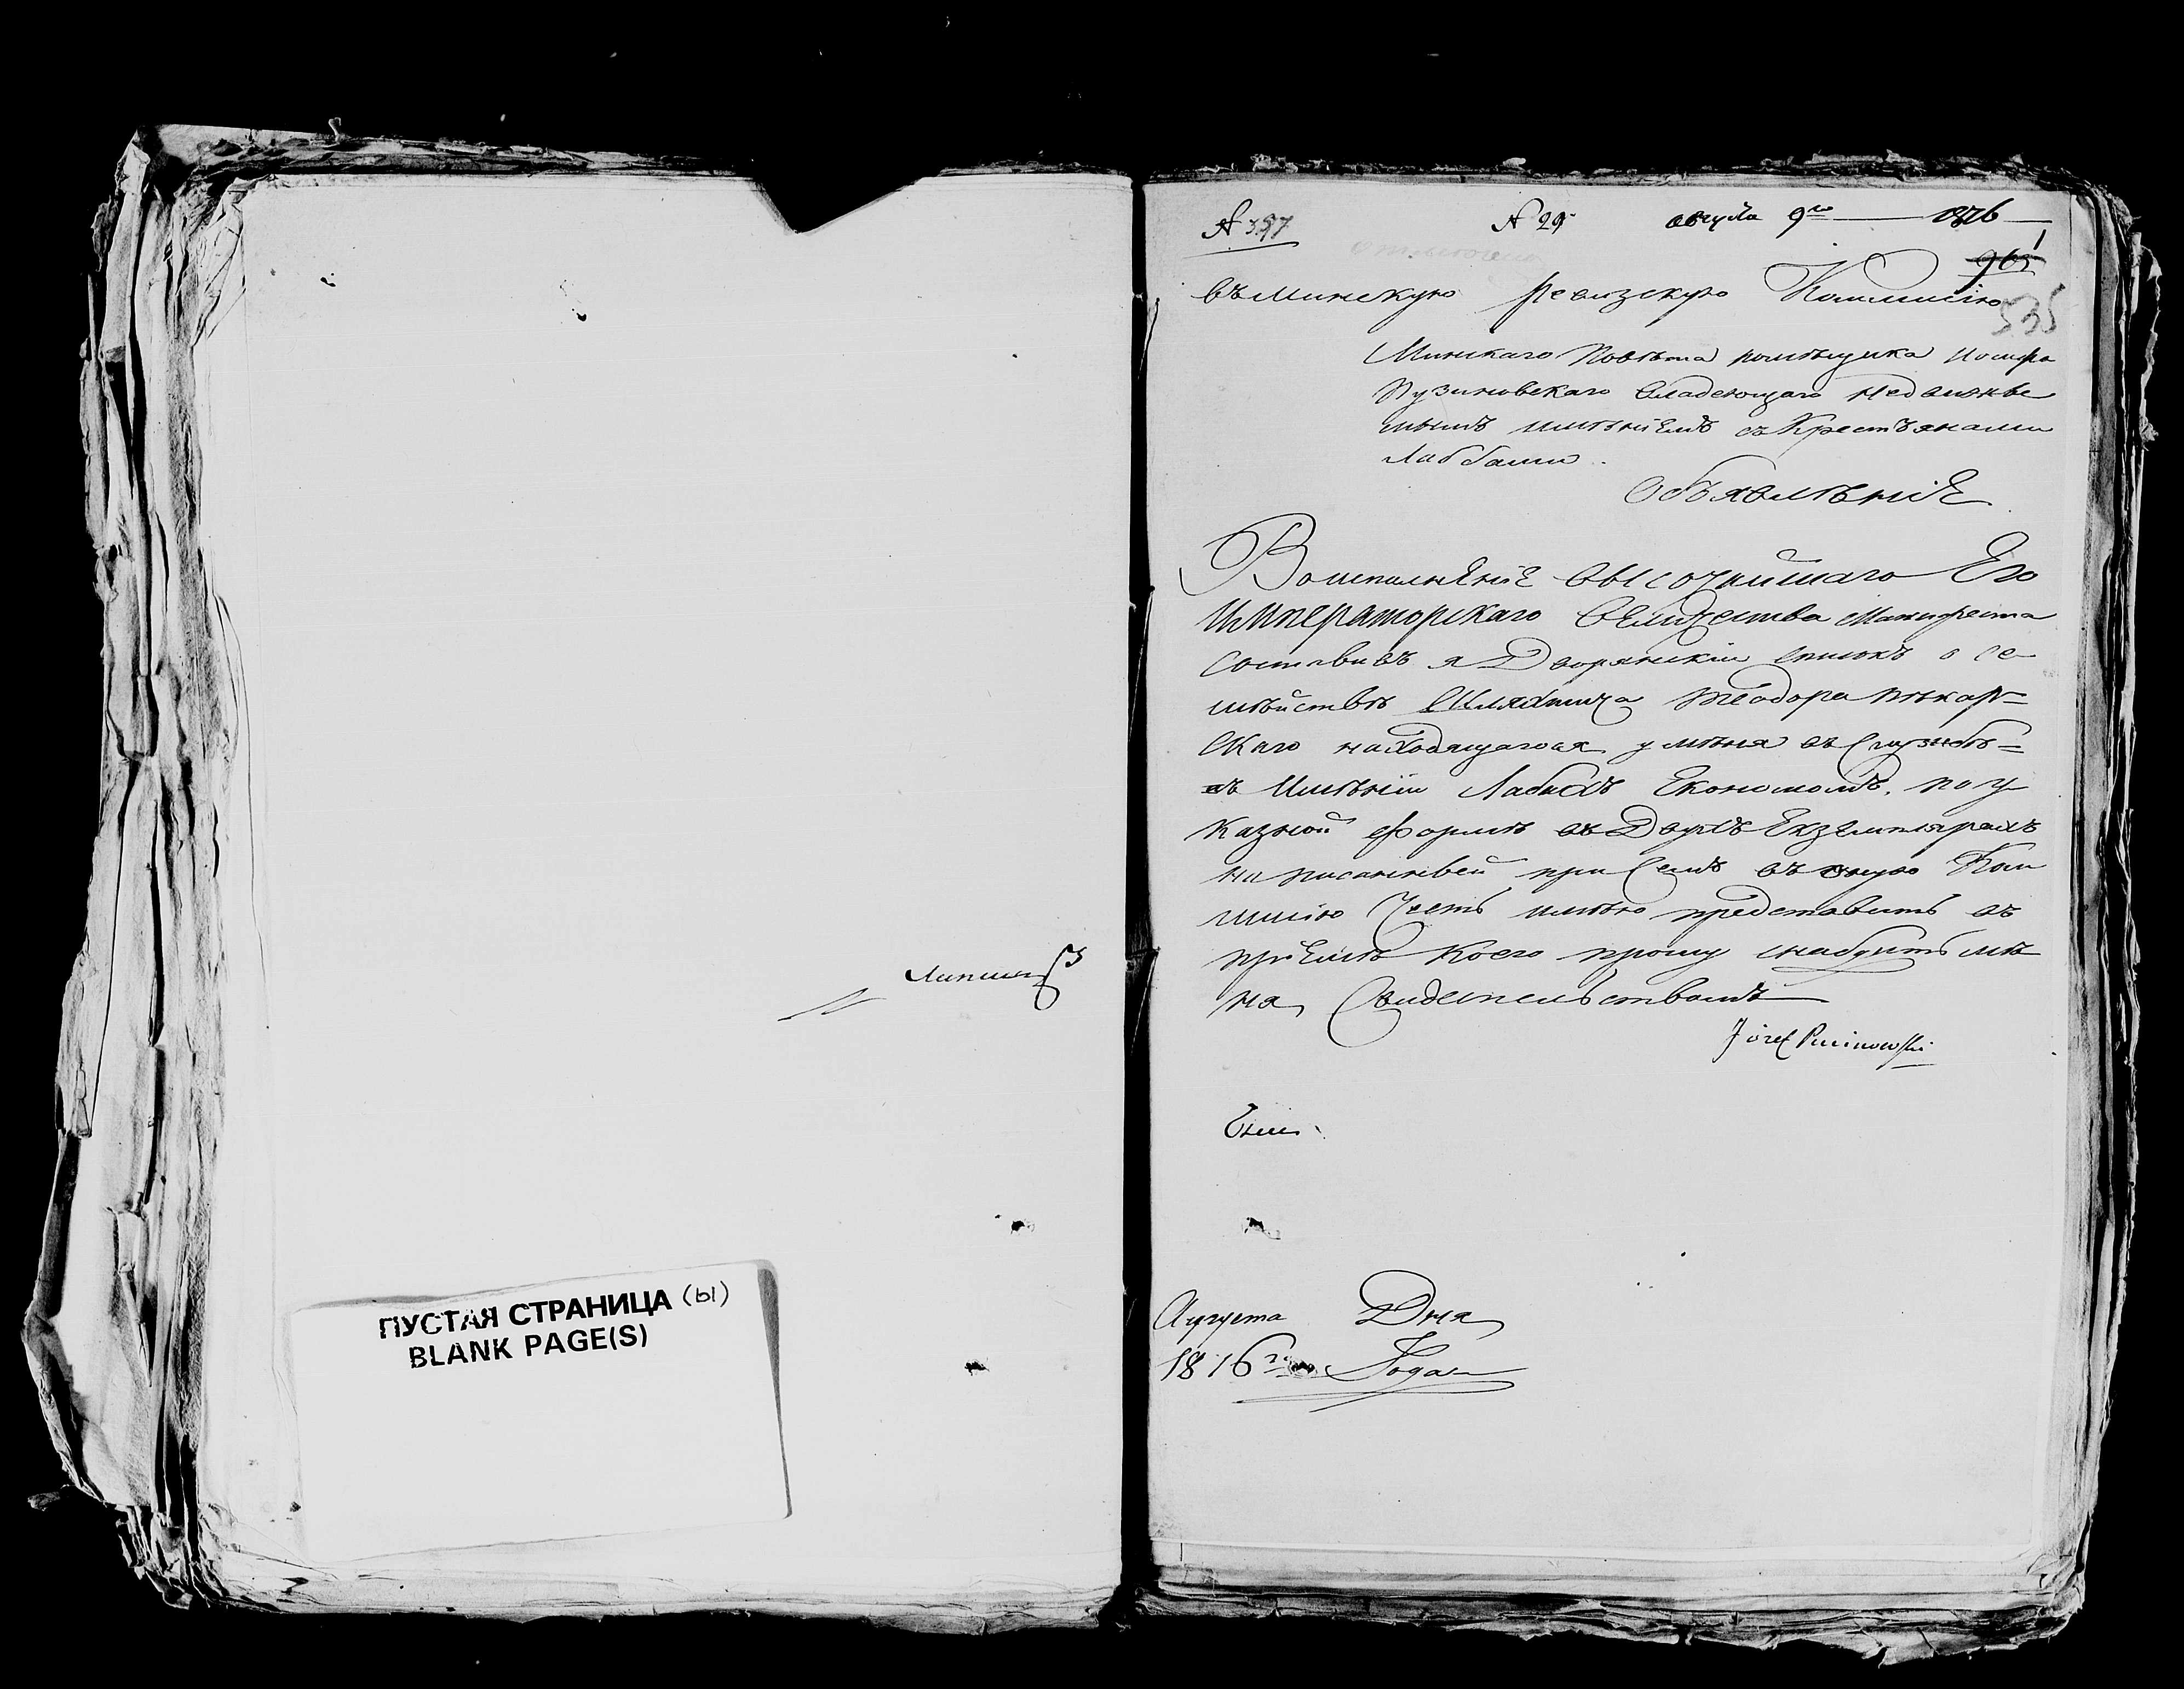 ПУСТАЯ СТРАНИЦА (ы)
BLANK PAGE(S)
№ 397 № 29 августа 9го 1816
961
535
въ Минскую Ревизскую Коммисію
Минскаго Повѣта помѣщика Иосифа
Пузиновскаго владеющаго недвижы
мымъ имѣніемъ съ Крестьянами
Лаббами
Объявлѣніе
Во исполненіе высочайшаго Его
Императорскаго Величества Манифеста
составивъ я Дворянскіи списокъ о се
мѣйствѣ Шляхтича Теодора Пѣкар=
скаго находящагося у мѣня въ службѣ=
въ Имѣніи Лабахъ Економомъ, по у
казной формѣ въ Двухъ Екземплярахъ
написанный при семъ въ оную Ком
мисію честь имѣю представить въ
пріемѣ коего прошу снабдить мѣ
ня Свидетельствомъ
Józef Puzinowski
Августа Дня
1816го Года